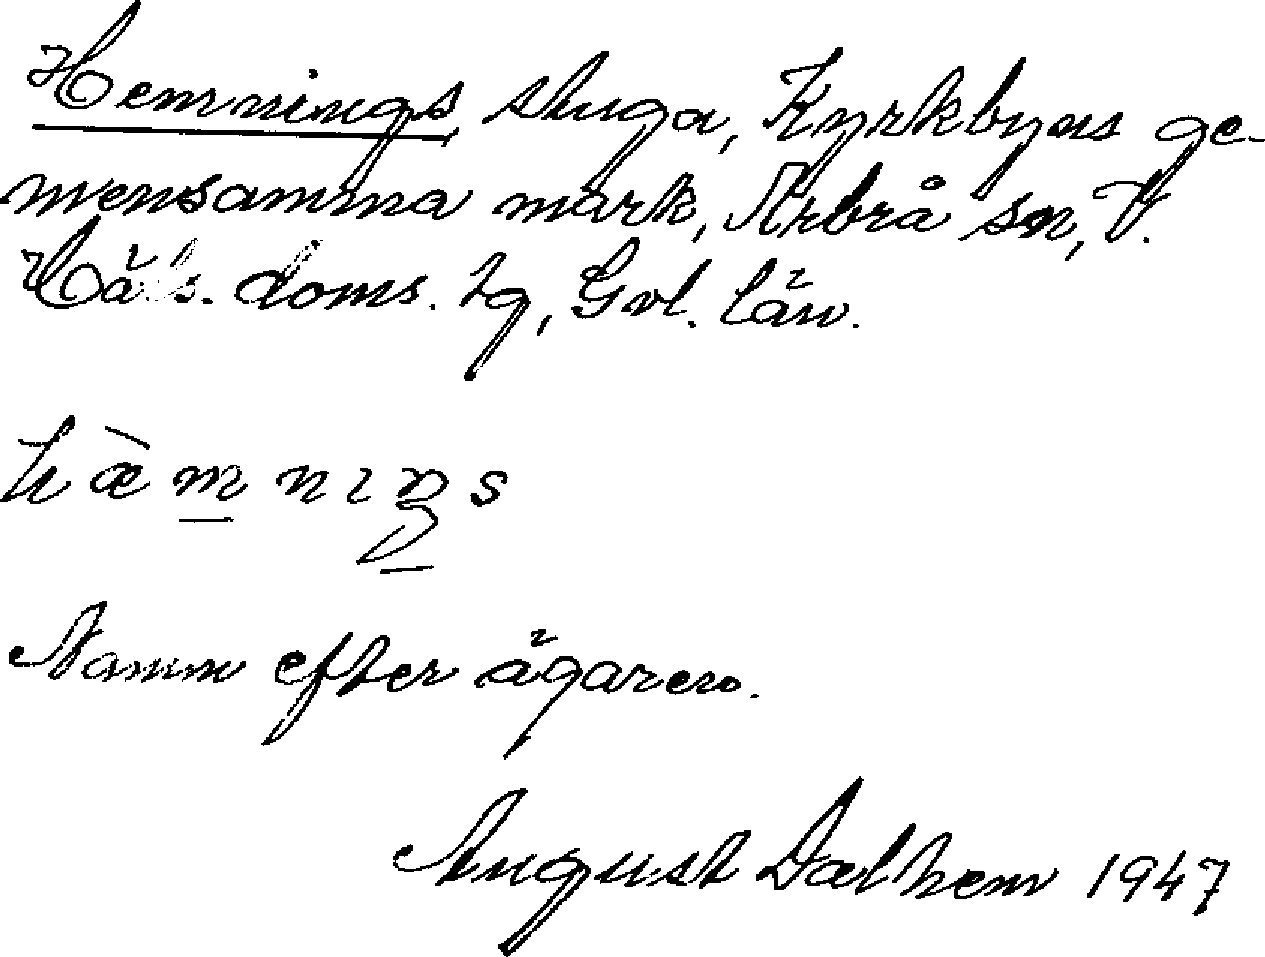 Hemnings stuga, Kyrkbyns ge-
mensamma mark, Arbrå sn, V.
Häls. doms. tg, Gvl. län.
hæ̀m̲nıŋ̲s
Namn efter ägaren.
August Dalhem 1947